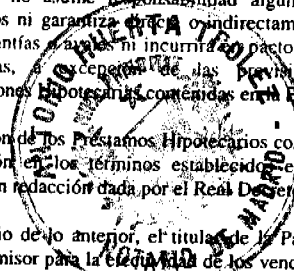 no asume responsabilidad algun
os ni garantiza directa o indirectam
entías o avales ni incurrirá en pacto
as, a excepción de las
ones Hipotecarias contenidas en la
ón de los Préstamos Hipotecarios co
ón en los términos establecidos e
n redacción dada por el Real Decreto
io de lo anterior, el titular de la Pa
misor para la efectividad de los venc
ANTONIO HUERTA TROLEZ
MADRID